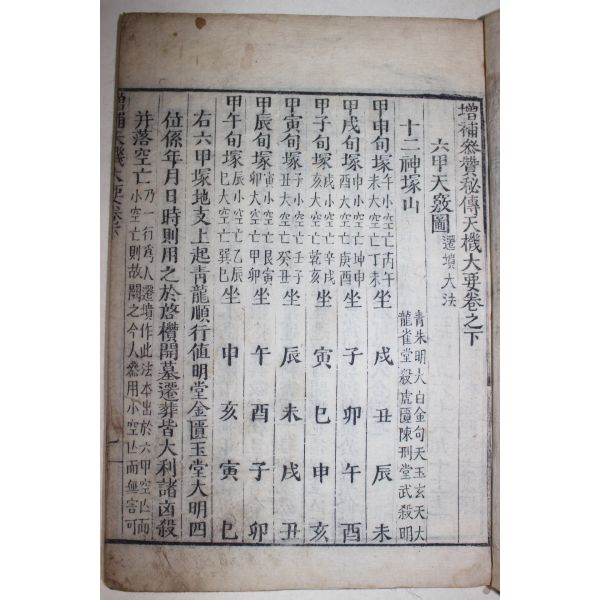 增補參贊秘傳天機大要卷之下
六甲天竅圖 遷墳大法
十二神塚山
靑朱明大白金句天玉玄天大
龍雀堂殺虎匱陳刑堂武殺明
甲申旬塚 午小空亡丙午 未大空亡丁未 坐 戌 丑 辰 未
甲戌旬塚 申小空亡坤申 酉大空亡庚酉 坐 子 卯 午 酉
甲子旬塚 戌小空亡辛戌 亥大空亡乾亥 坐 寅 巳 申 亥
甲寅旬塚 子小空亡壬子 丑大空亡癸丑 坐 辰 未 戌 丑
甲辰旬塚 寅小空亡艮寅 卯大空亡甲卯 坐 午 酉 子 卯
甲午旬塚 辰小空亡乙辰 巳大空亡巽巳 坐 申 亥 寅 巳
右六甲塚地支上起靑龍順行值明堂金匱玉堂大明四
位係年月日時則用之於啓欑開墓遷葬皆大利諸凶殺
并落空亡
乃一行爲人遷墳作此法本出於六甲空亡而
小空亡則故闕之今人叅用小空亡而無害可
增補天機大要卷下
一